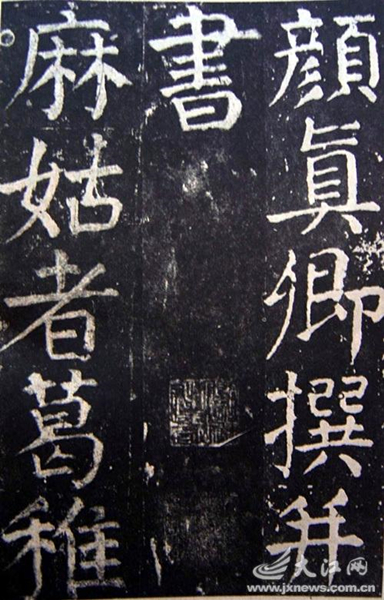 顏真卿撰并
書
麻姑者葛稚
大江网
www.jxnews.com.cn